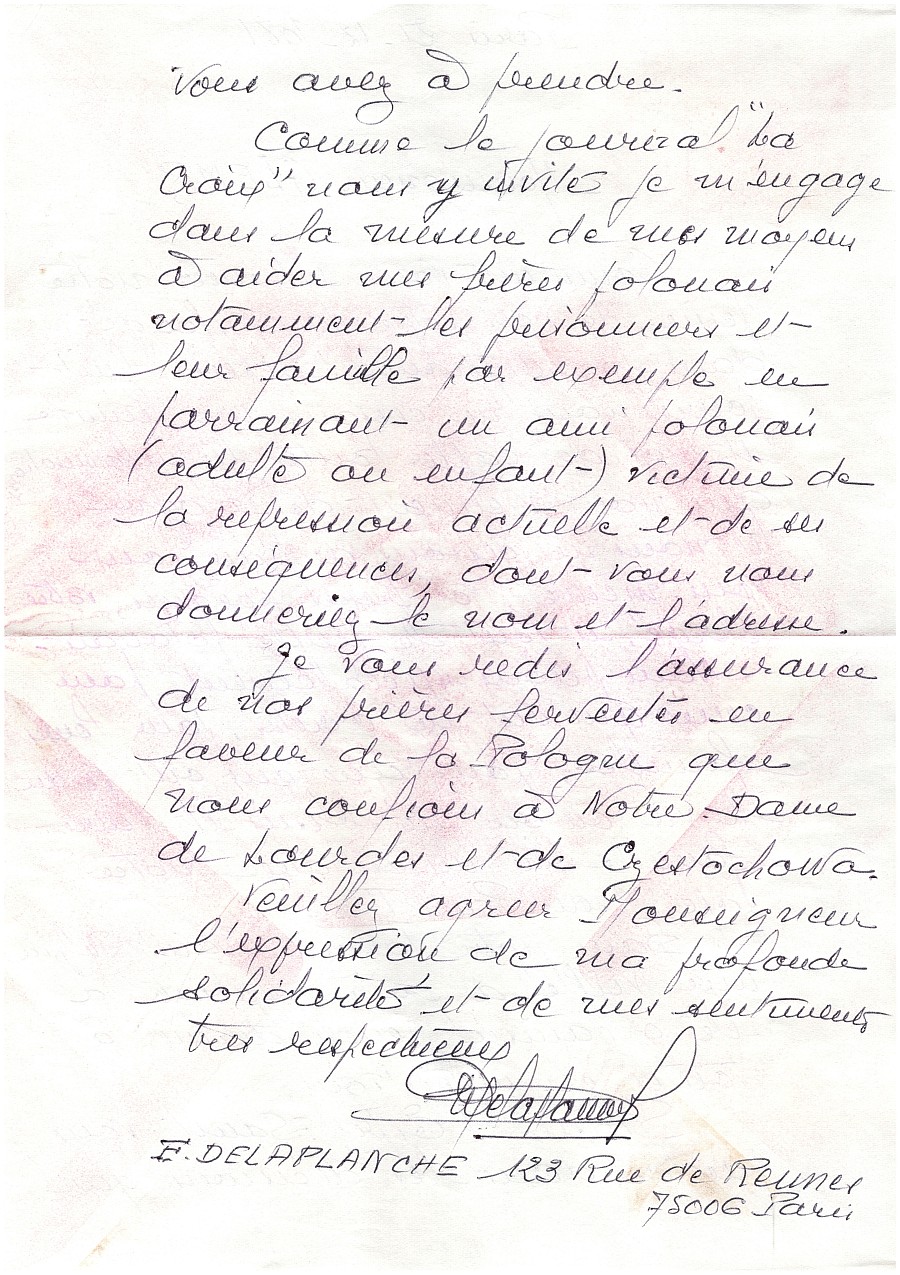 vous avez à prendre.
Comme le journal "La
Croix" nous y invite je m'engage
dans la mesure de mes moyens
à aider mes frères polonais
notamment les prisonniers et
leur famille par exemple en
parrainant un ami polonais
(adulte ou enfant) victime de
la repression actuelle et de ses
conséquences, dont vous nous
donneriez le nom et l'adresse.
Je vous redis l'assurance
de nos prières ferventes en
faveur de la Pologne que
nous confions à Notre-Dame
de Lourdes et de Czestochowa.
Veuillez agréer Monseigneur
l'expression de ma profonde
solidarité et de mes sentiments
très respectueux
EDelaplanche
E. DELAPLANCHE 123 Rue de Rennes
75006 Paris